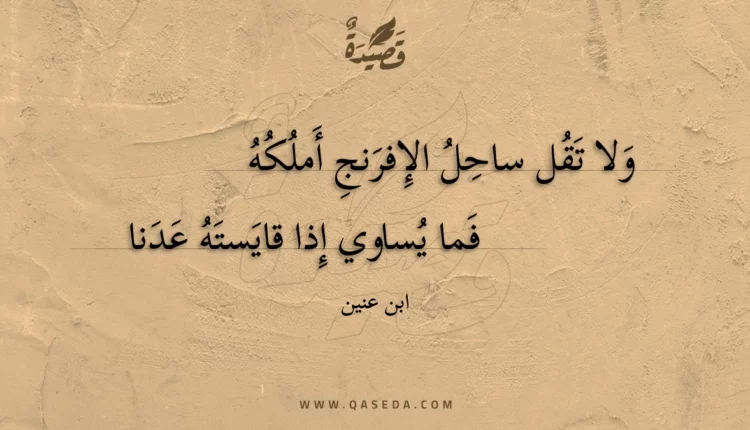 قَصِيدَةٌ
وَلا تَقُل ساحِلُ الإِفرَنجِ أَملُكُهُ
فَما يُساوي إِذا قايَستَهُ عَدَنا
ابن عنين
WWW.QASEDA.COM